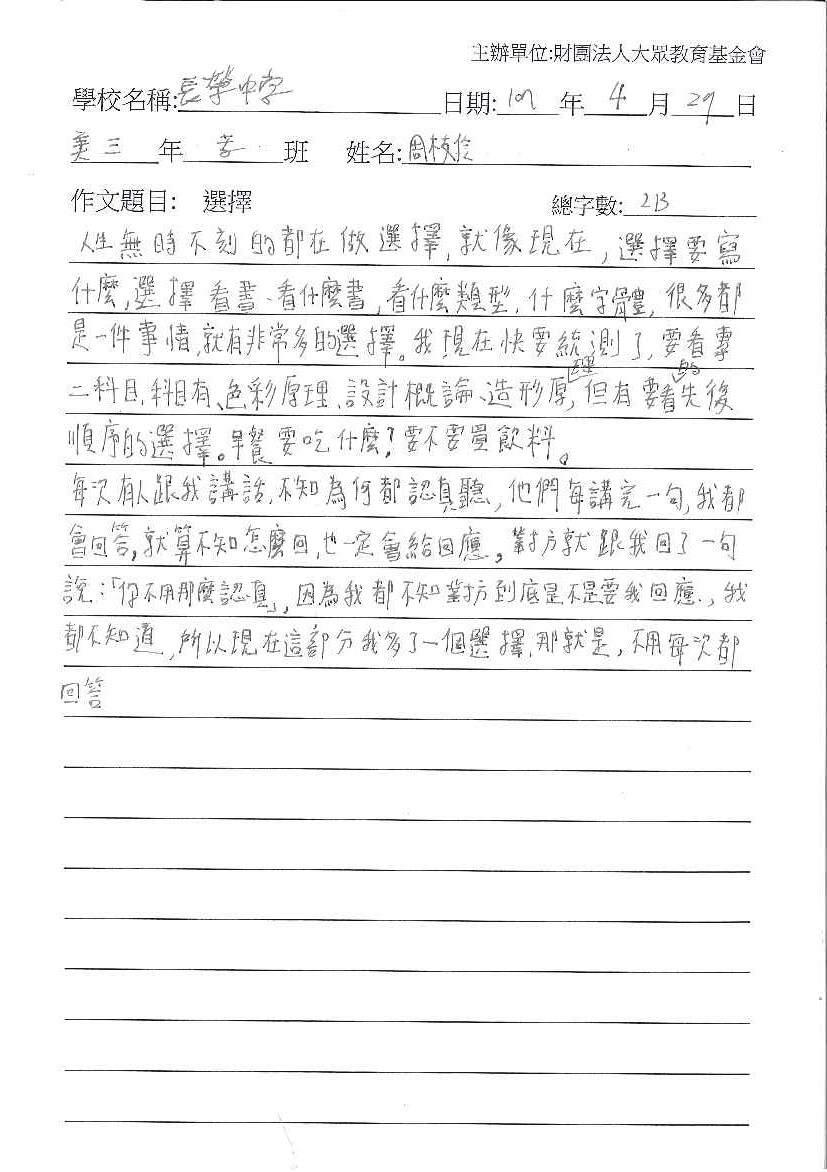 主辦單位:財團法人大眾教育基金會
學校名稱:長榮中学 日期:109 年 4 月 29 日
美三 年 孝 班 姓名:周枝伶
作文題目: 選擇 總字數: 213
人生無時不刻的都在做選擇,就像現在,選擇要寫
什麼,選擇看書、看什麼書,看什麼類型,什麼字體,很多都
是一件事情,就有非常多的選擇。我現在快要統測了,要看專
二科目,科目有、色彩原理、設計概論、造形原理,但有要看的先後
順序的選擇。早餐要吃什麼?要不要買飲料。
每次有人跟我講話,不知為何都認真聽,他們每講完一句,我都
會回答,就算不知怎麼回,也一定會給回應。對方就跟我回了一句
說:「你不用那麼認真」,因為我都不知對方到底是不是要我回應.,我
都不知道,所以現在這部分我多了一個選擇,那就是,不用每次都
回答